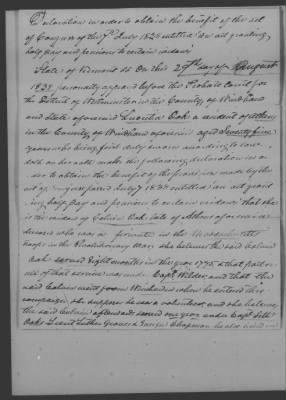 Declaration in order to obtain the benefit of the act
of Congress of the 7th July 1838 entitled "an act granting
half pay and pensions to certain widows"
State of Vermont SS On this 29th day of August
1838 personally appeared before the Probate Court for
the District of Westminster in the County of Windham
and State aforesaid Lucretia Oak a resident of Athens
in the County of Windham aforesaid aged Seventy five
years who being first duly sworn according to law
doth on her oath make the following declaration in or
der to obtain the benefit of the provision made by the
act of Congress passed July 7 1838 entitled "an act grant
ing half pay and pensions to certain widows" that she
is the widow of Calvin Oak late of Athens aforesaid
deceased who was a private in the Massachusetts
troops in the Revolutionary War. she believes the said Calvin
Oak served Eight months in the year 1775 & that part or
all of that service was under Capt Wilder, and that the
said Calvin went from Winchendon when he entered this
campaign, she supposes he was a volunteer, and she believes
the said Calvin afterwards served one year under Capt Seth
Oak Lieut Luther Graves & Ensign Chapman he also served in